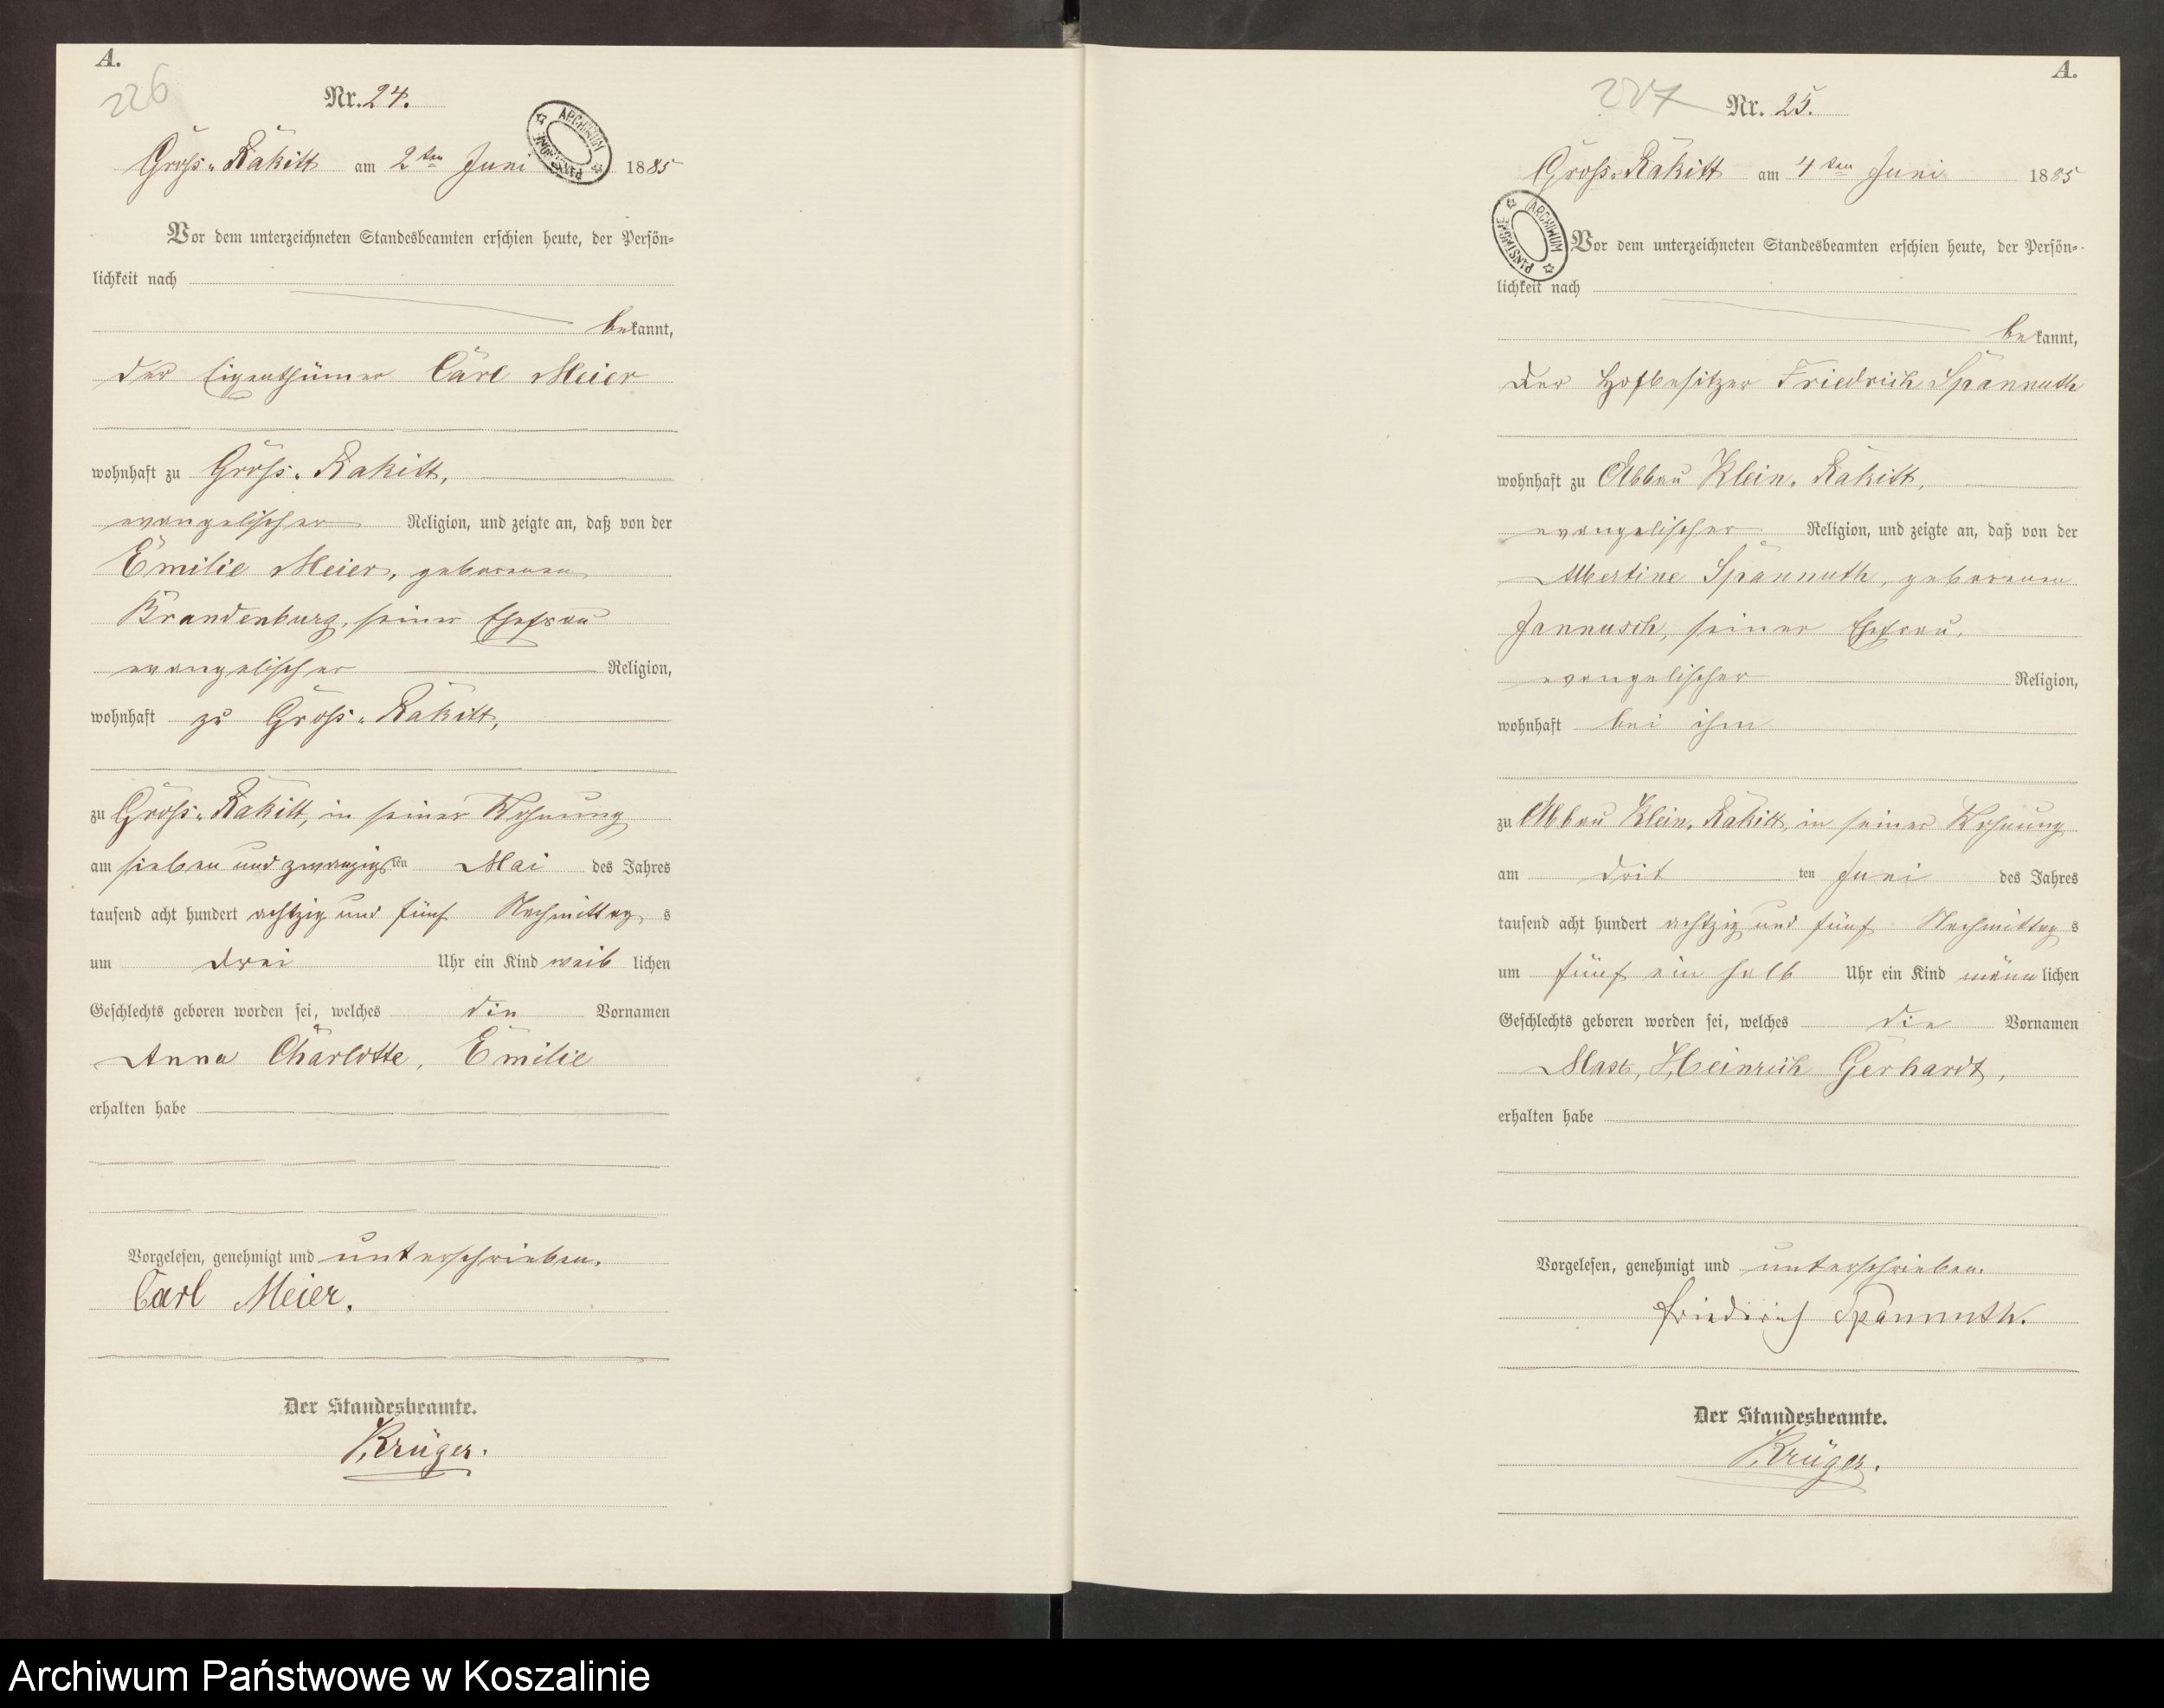 A.
226
Nr. 24.
Groß-Rakitt am 2ten Juni 1885
ARCHIWUM PAŃSTWOWE
Vor dem unterzeichneten Standesbeamten erschien heute, der Persön=
lichkeit nach
bekannt,
der Eigenthümer Carl Meier
wohnhaft zu Groß-Rakitt,
evangelischer Religion, und zeigte an, daß von der
Emilie Meier, geborenen
Brandenburg, seiner Ehefrau
evangelischer Religion,
wohnhaft zu Groß-Rakitt,
zu Groß-Rakitt, in seiner Wohnung
am sieben und zwanzigsten Mai des Jahres
tausend acht hundert achtzig und fünf Nachmittags
um drei Uhr ein Kind weiblichen
Geschlechts geboren worden sei, welches die Vornamen
Anna Charlotte, Emilie
erhalten habe
Vorgelesen, genehmigt und unterschrieben.
Carl Meier.
Der Standesbeamte.
Krüger.
A.
227
Nr. 25.
Groß-Rakitt am 4ten Juni 1885
ARCHIWUM PAŃSTWOWE
Vor dem unterzeichneten Standesbeamten erschien heute, der Persön=
lichkeit nach
bekannt,
der Hofbesitzer Friedrich Spannuth
wohnhaft zu Abbau Klein-Rakitt,
evangelischer Religion, und zeigte an, daß von der
Albertine Spannuth, geborenen
Jannusch, seiner Ehefrau,
evangelischer Religion,
wohnhaft bei ihm
zu Abbau Klein-Rakitt, in seiner Wohnung
am dritten Juni des Jahres
tausend acht hundert achtzig und fünf Nachmittags
um fünf ein halb Uhr ein Kind männlichen
Geschlechts geboren worden sei, welches die Vornamen
Max, Heinrich Gerhardt,
erhalten habe
Vorgelesen, genehmigt und unterschrieben.
Friedrich Spannuth.
Der Standesbeamte.
Krüger.
Archiwum Państwowe w Koszalinie